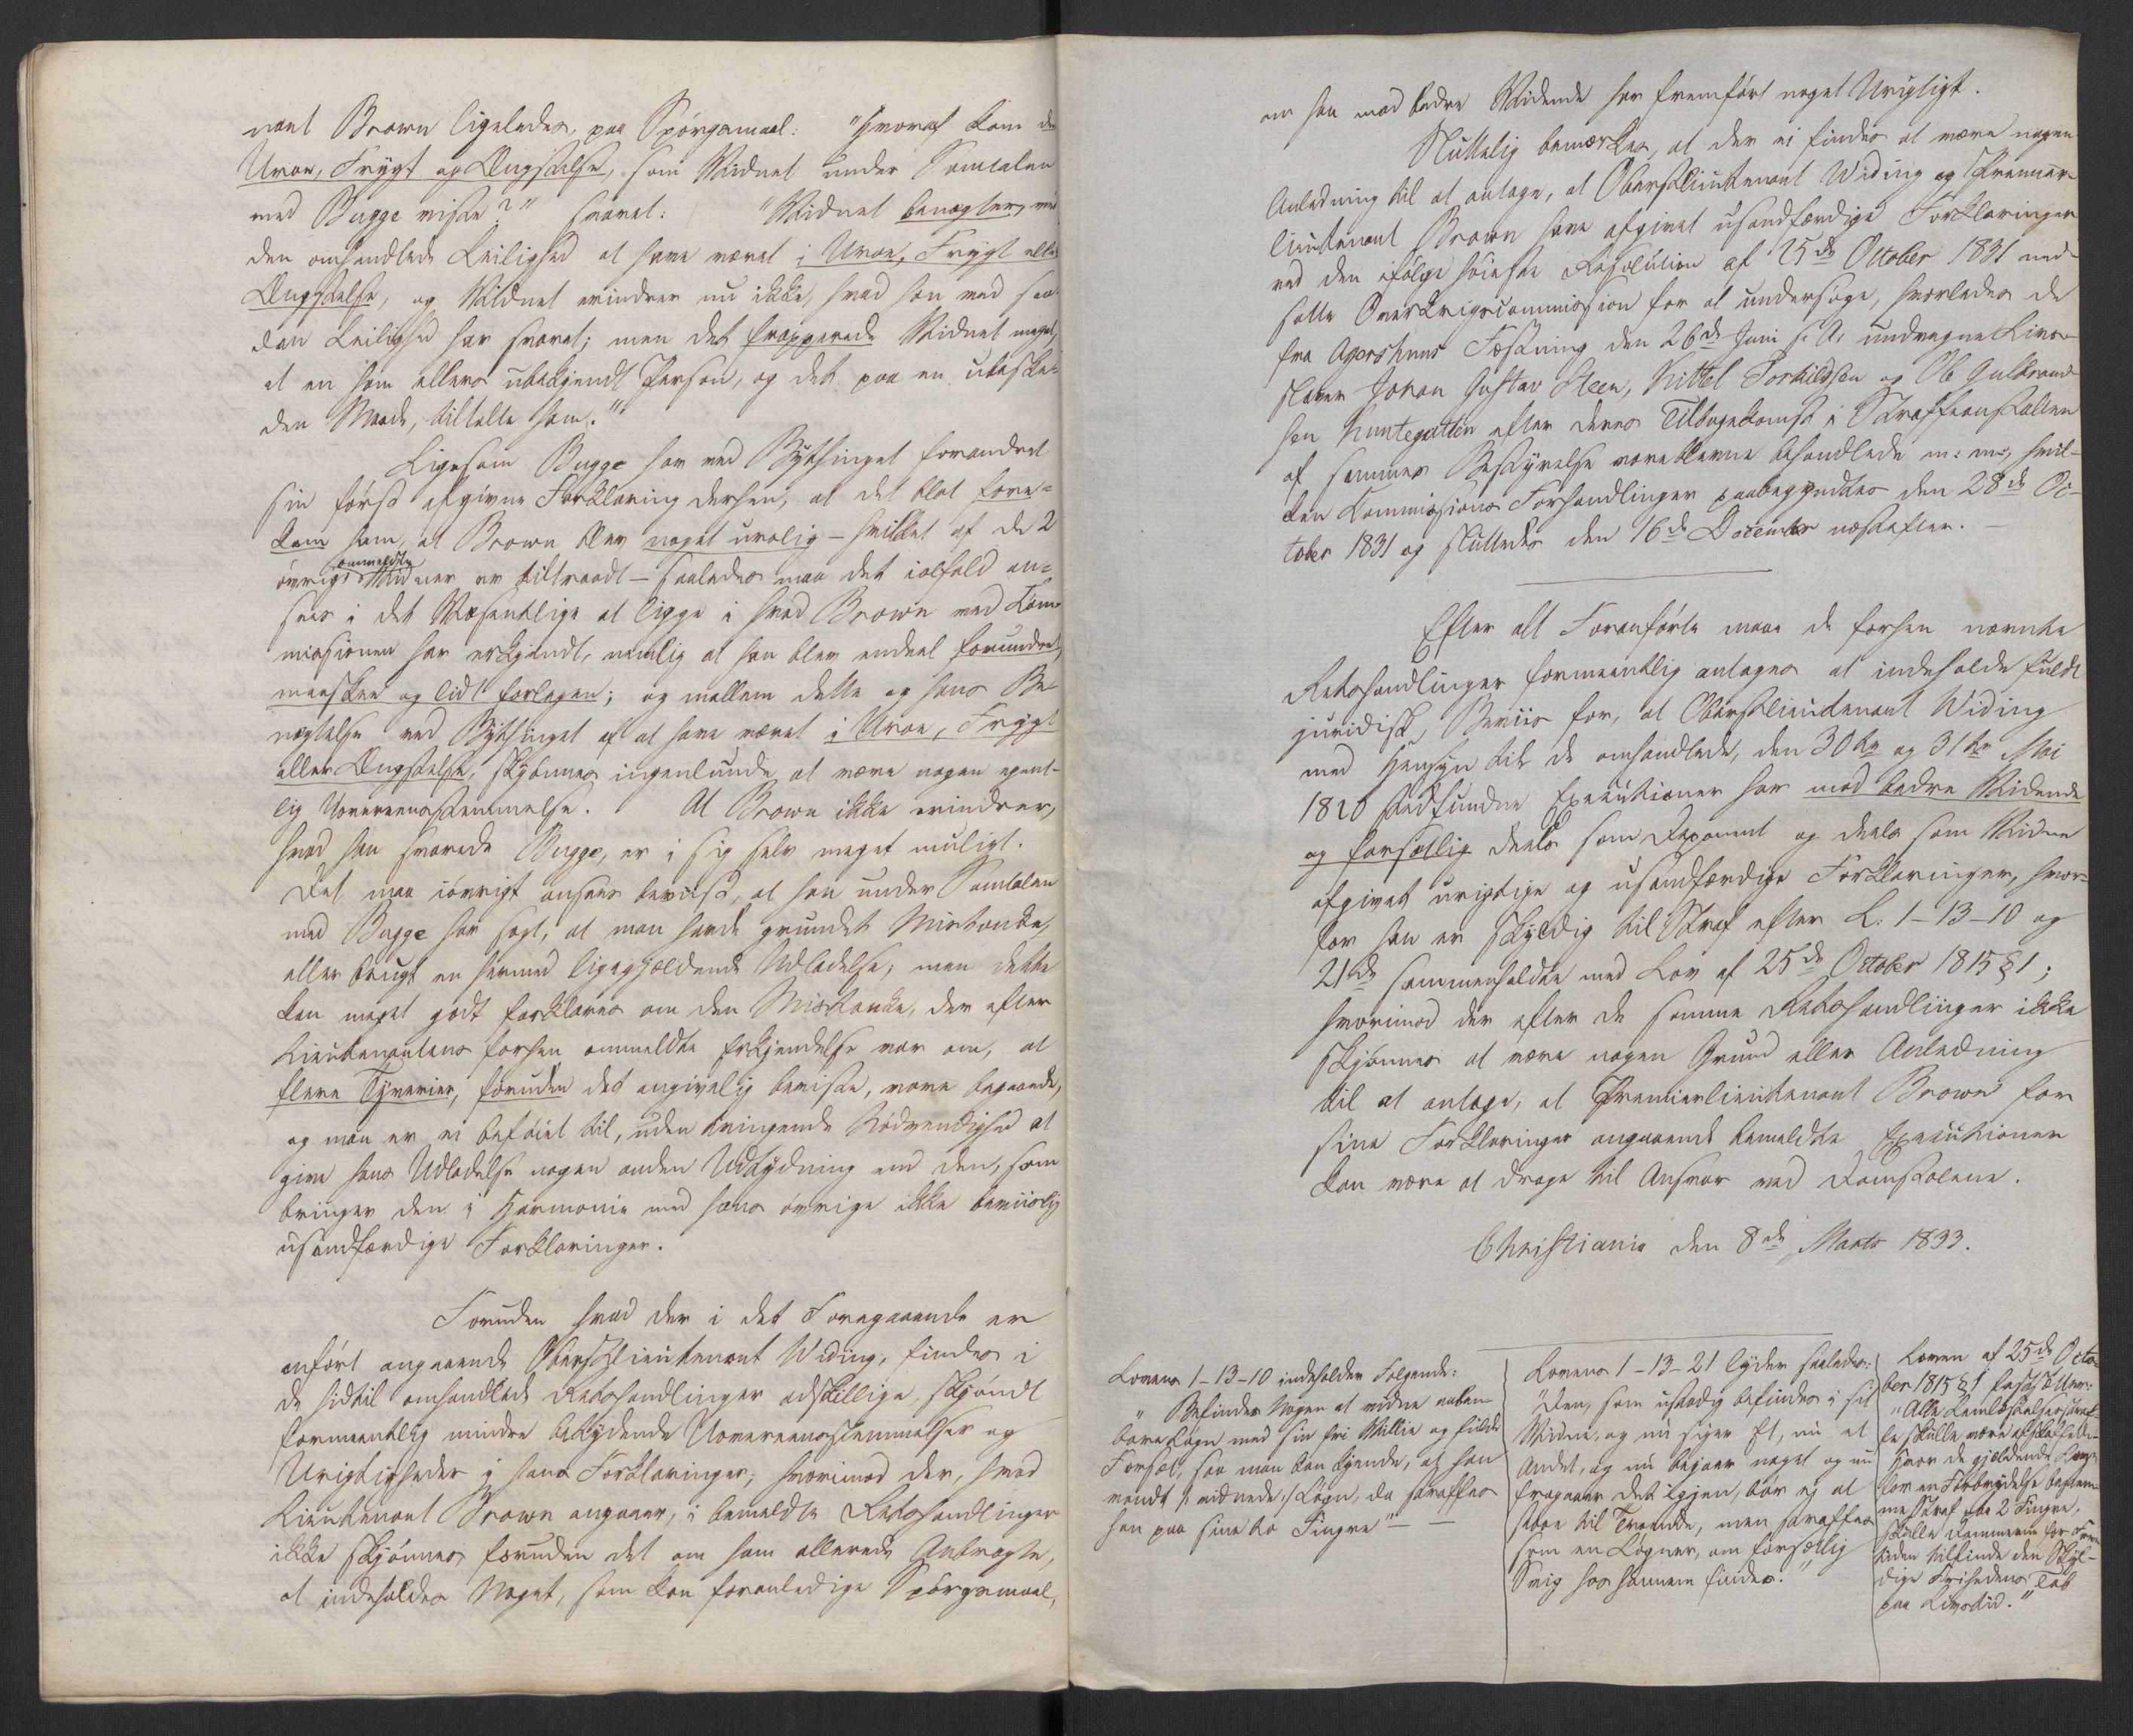 nant Brown ligeledes, paa Spörgsmaal: "Hvoraf kom den
Uroe, Frygt og Ængstelse, som Vidnet under Samtalen
med Bugge viste?" svaret: "Vidnet benægter, ved
den omhandlede Leilighed at have været i Uroe, Frygt eller
Ængstelse, og Vidnet erindrer nu ikke, hvad han ved saa-
dan Leilighed har svaret; men det frapperede Vidnet meget,
at en ham ellers ubekjendt Person, og det paa en ubeske-
den Maade, tiltalte ham."
Ligesom Bugge har ved Bythinget forandret
sin först afgivne Forklaring derhen, at det blot fore-
kom ham, at Brown blev noget urolig – hvilket af de 2
övrige ommeldte Vidner er tiltraadt – saaledes maa det ialfald an-
sees i det Væsentlige at ligge i hvad Brown ved Com-
missionen har erkjendt, nemlig at han blev endeel forundret,
maaskee og lidt forlegen; og mellem dette og hans Be-
nægtelse ved Bythinget af at have været i Uroe, Frygt
eller Ængstelse, skjönnes ingenlunde at være nogen egent-
lig Uovereensstemmelse. At Brown ikke erindrer,
hvad han svarede Bugge, er i sig selv meget muligt.
Det maa iövrigt ansees beviist, at han under Samtalen
med Bugge har sagt, at man havde grundet Mistanke,
eller brugt en hermed ligegjældende Udladelse; men dette
kan meget godt forklares om den Mistanke, der efter
Lieutenantens forhen ommeldte Erkjendelse var om, at
flere Tyverier, foruden det angivelig beviste, vare begaaede,
og man er ei beföiet til, uden tvingende Nödvendighed at
give hans Udladelse nogen anden Udtydning end den, som
bringer den i Harmonie med hans övrige ikke beviislig
usandfærdige Forklaringer.
Foruden hvad der i det Foregaaende er
anfört angaaende Oberstlieutenant Widing, findes i
de hidtil omhandlede Retshandlinger adskillige, skjöndt
formeentlig mindre betydende Uovereensstemmelser og
Urigtigheder i hans Forklaringer; hvorimod der, hvad
Lieutenant Brown angaaer, i bemeldte Retshandlinger
ikke skjönnes, foruden det om ham allerede Anbragte,
at indeholdes Noget, som kan foranledige Spörgsmaal,
om han mod bedre Vidende har fremfört noget Urigtigt.
Sluttelig bemærkes, at der ei findes at være nogen
Anledning til at antage, at Oberstlieutenant Widing og Premier-
lieutenant Brown have afgivet usandfærdige Forklaringer
ved den ifölge höieste Resolution af 25de October 1831 ned-
satte Overkrigscommission for at undersöge, hvorledes de
fra Agershuus Fæstning den 26de Juni s. A. undvegne Livs-
slaver Johan Gustav Steen, Kittel Torkildsen og Ole Gulbrand-
sen Huntegutten efter deres Tilbagekomst i Straffeanstalten
af sammes Bestyrelse vare blevne behandlede m: m:, hvil-
ken Commissions Forhandlinger paabegyndtes den 28de Oc-
tober 1831 og sluttedes den 16de December næstefter. –
Efter alt Foranförte maae de forhen nævnte
Retshandlinger formeentlig antages at indeholde fuldt
juridisk Beviis for, at Oberstlieutenant Widing
med Hensyn til de omhandlede, den 30te og 31te Mai
1820 stedfundne Executioner har mod bedre Vidende
og forsætlig deels som Deponent og deels som Vidne
afgivet urigtige og usandfærdige Forklaringer, hvor-
for han er skyldig til Straf efter L: 1–13–10 og
21de sammenholdte med Lov af 25de October 1815 § 1;
hvorimod der efter de samme Retshandlinger ikke
skjönnes at være nogen Grund eller Anledning
til at antage, at Premierlieutenant Brown for
sine Forklaringer angaaende bemeldte Executioner
kan være at drage til Ansvar ved Domstolene.
Christiania den 8de Marts 1833.
Lovens 1–13–10 indeholder Følgende:
"Befindes Nogen at vidne aaben-
bare Løgn med sin fri Villie og fuldt
Forsæt, saa man kan kjende, at han
vandt /: vidnede :/ Løgn, da straffes
han paa sine to Fingre" –
Lovens 1–13–21 lyder saaledes:
"Den, som ustadig befindes i sit
Vidne, og nu siger Et, nu et
Andet, og nu bejaer noget og nu
fragaaer det igjen, bör ej at
stede til Troende, men straffes
som en Løgner, om forsætlig
Svig hos hannem findes."
Loven af 25de Octo-
ber 1815 § 1 fastsætter:
"Alle Lemlæstelsesstraf-
fe skulle være afskaffede.
Hvor de gjældende Love
for en Forbrydelse bestem-
me Straf paa 2 Fingre,
skulle Dommerne for Frem-
tiden tilfinde den Skyl-
dige Frihedens Tab
paa Livstid."